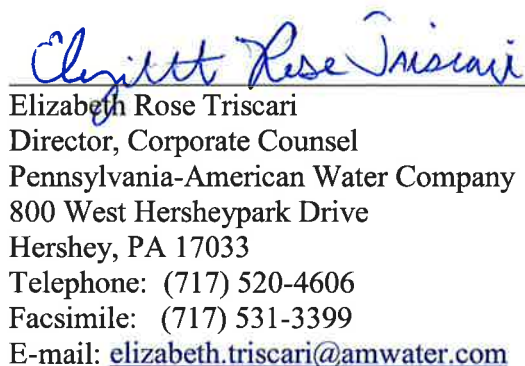 Elizabeth Rose Triscari
Elizabeth Rose Triscari
Director, Corporate Counsel
Pennsylvania-American Water Company
800 West Hersheypark Drive
Hershey, PA 17033
Telephone: (717) 520-4606
Facsimile: (717) 531-3399
E-mail: elizabeth.triscari@amwater.com